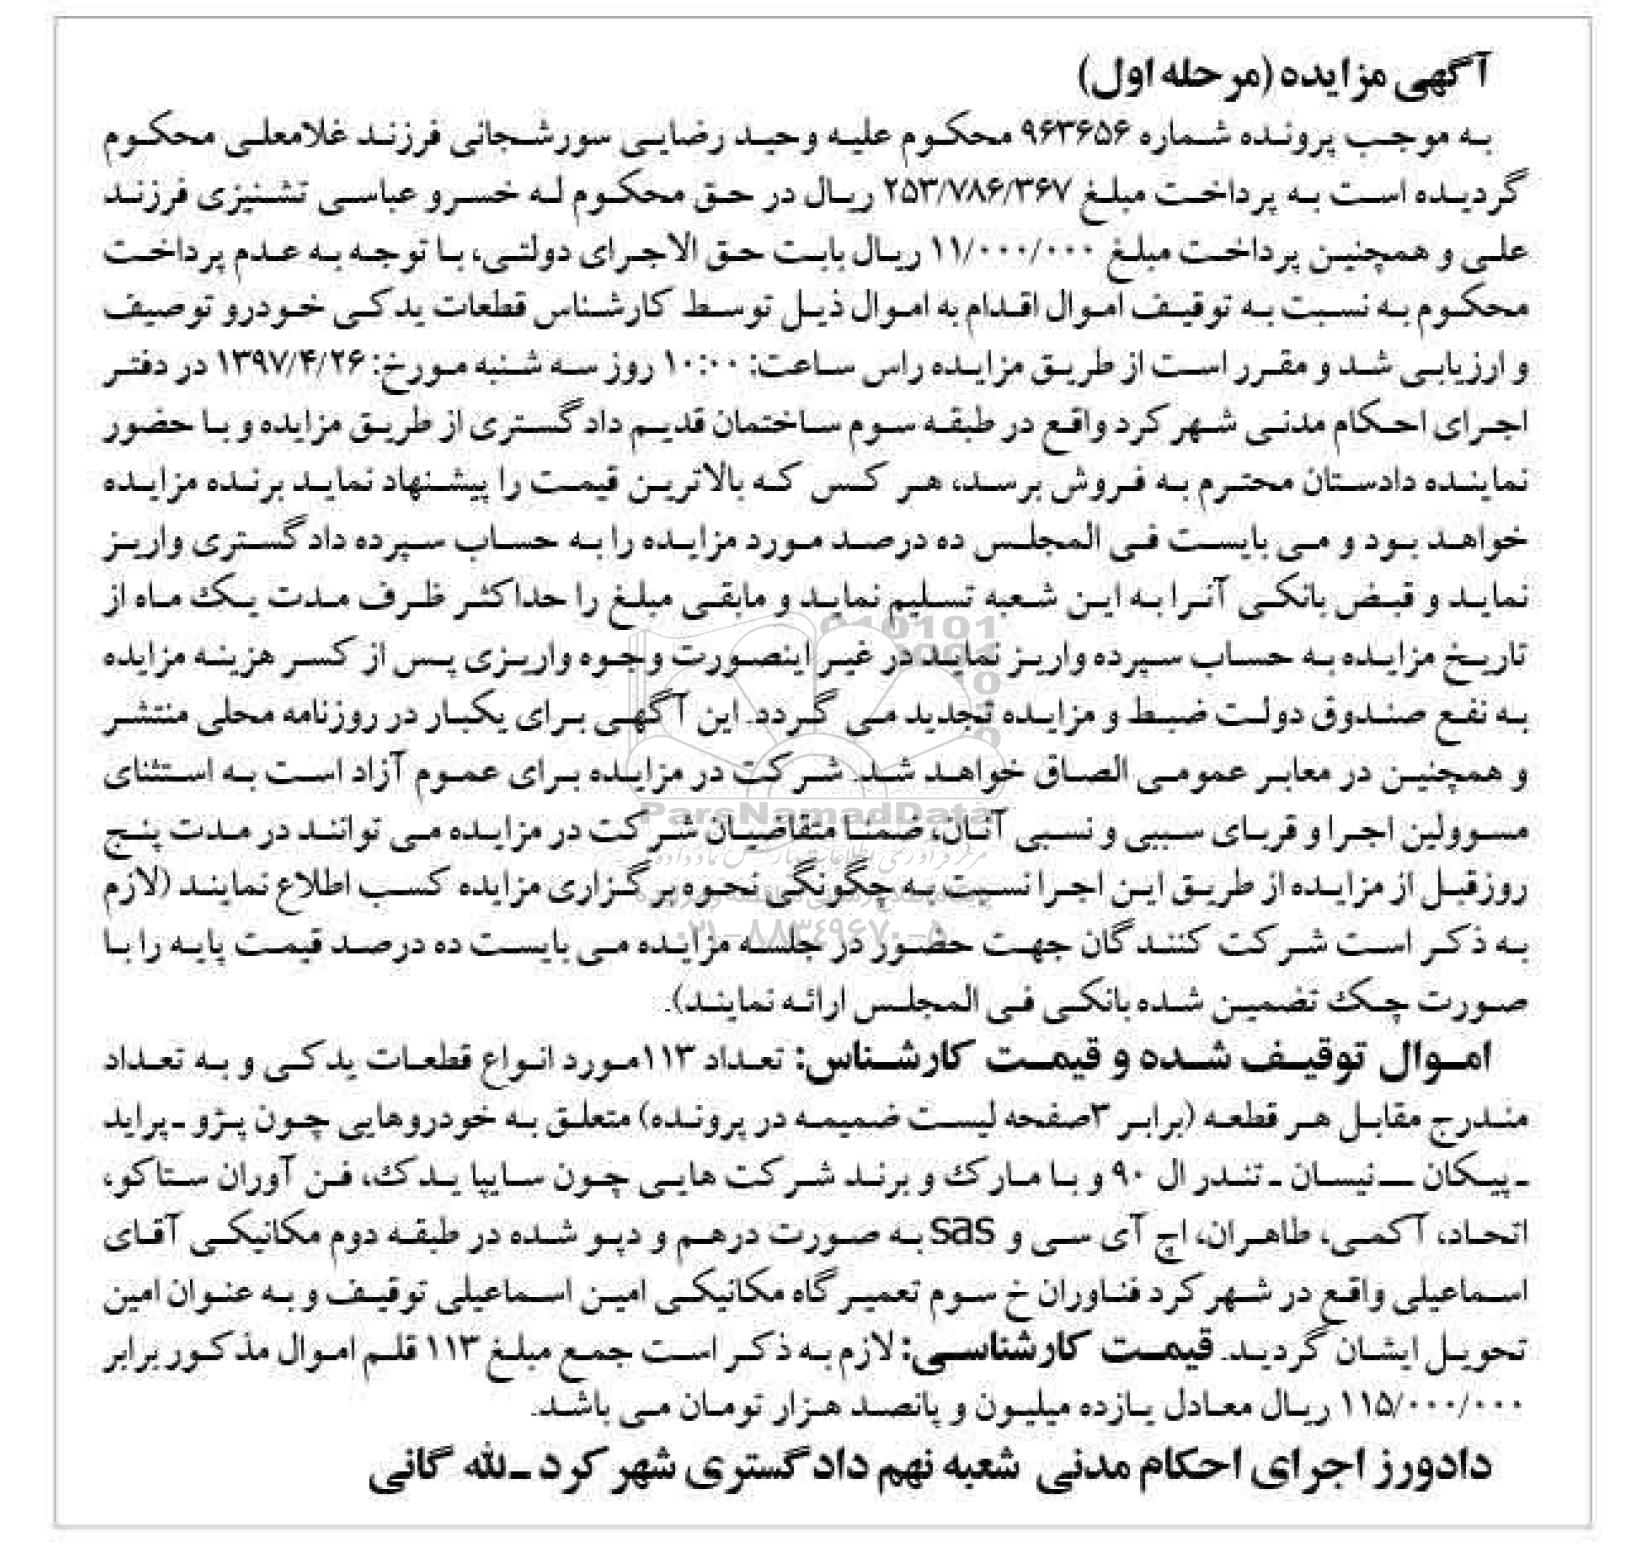 آگهی مزایده (مرحله اول)
به موجب پرونده شماره ۹۶۳۶۵۶ محکوم علیه وحید رضایی سورشجانی فرزند غلامعلی محکوم
گردیده است به پرداخت مبلغ ۲۵۳/۷۸۶/۳۶۷ ریال در حق محکوم له خسرو عباسی تشنیزی فرزند
علی و همچنین پرداخت مبلغ ۱۱/۰۰۰/۰۰۰ ریال بابت حق الاجرای دولتی، با توجه به عدم پرداخت
محکوم به نسبت به توقیف اموال اقدام به اموال ذیل توسط کارشناس قطعات یدکی خودرو توصیف
و ارزیابی شد و مقرر است از طریق مزایده راس ساعت: ۱۰:۰۰ روز سه شنبه مورخ: ۱۳۹۷/۴/۲۶ در دفتر
اجرای احکام مدنی شهرکرد واقع در طبقه سوم ساختمان قدیم دادگستری از طریق مزایده و با حضور
نماینده دادستان محترم به فروش برسد، هر کس که بالاترین قیمت را پیشنهاد نماید برنده مزایده
خواهد بود و می بایست فی المجلس ده درصد مورد مزایده را به حساب سپرده دادگستری واریز
نماید و قبض بانکی آنرا به این شعبه تسلیم نماید و مابقی مبلغ را حداکثر ظرف مدت یک ماه از
تاریخ مزایده به حساب سپرده واریز نماید در غیر اینصورت وجوه واریزی پس از کسر هزینه مزایده
به نفع صندوق دولت ضبط و مزایده تجدید می گردد. این آگهی برای یکبار در روزنامه محلی منتشر
و همچنین در معابر عمومی الصاق خواهد شد. شرکت در مزایده برای عموم آزاد است به استثنای
مسوولین اجرا و قربای سببی و نسبی آنان، ضمنا متقاضیان شرکت در مزایده می توانند در مدت پنج
روزقبل از مزایده از طریق این اجرا نسبت به چگونگی نحوه برگزاری مزایده کسب اطلاع نمایند (لازم
به ذکر است شرکت کنندگان جهت حضور در جلسه مزایده می بایست ده درصد قیمت پایه را با
صورت چک تضمین شده بانکی فی المجلس ارائه نمایند).
اموال توقیف شده و قیمت کارشناس: تعداد ۱۱۳مورد انواع قطعات یدکی و به تعداد
مندرج مقابل هر قطعه (برابر ۳صفحه لیست ضمیمه در پرونده) متعلق به خودروهایی چون پژو ـ پراید
ـ پیکان ـ نیسان ـ تندر ال ۹۰ و با مارک و برند شرکت هایی چون سایپا یدک، فن آوران ستاکو،
اتحاد، آکمی، طاهران، اچ آی سی و sas به صورت درهم و دپو شده در طبقه دوم مکانیکی آقای
اسماعیلی واقع در شهرکرد فناوران خ سوم تعمیرگاه مکانیکی امین اسماعیلی توقیف و به عنوان امین
تحویل ایشان گردید. قیمت کارشناسی: لازم به ذکر است جمع مبلغ ۱۱۳ قلم اموال مذکور برابر
۱۱۵/۰۰۰/۰۰۰ ریال معادل یازده میلیون و پانصد هزار تومان می باشد.
دادورز اجرای احکام مدنی شعبه نهم دادگستری شهرکرد ـ لله گانی
ParsNamadData
۰۲۱-۸۸۳۴۹۶۷۰-۵